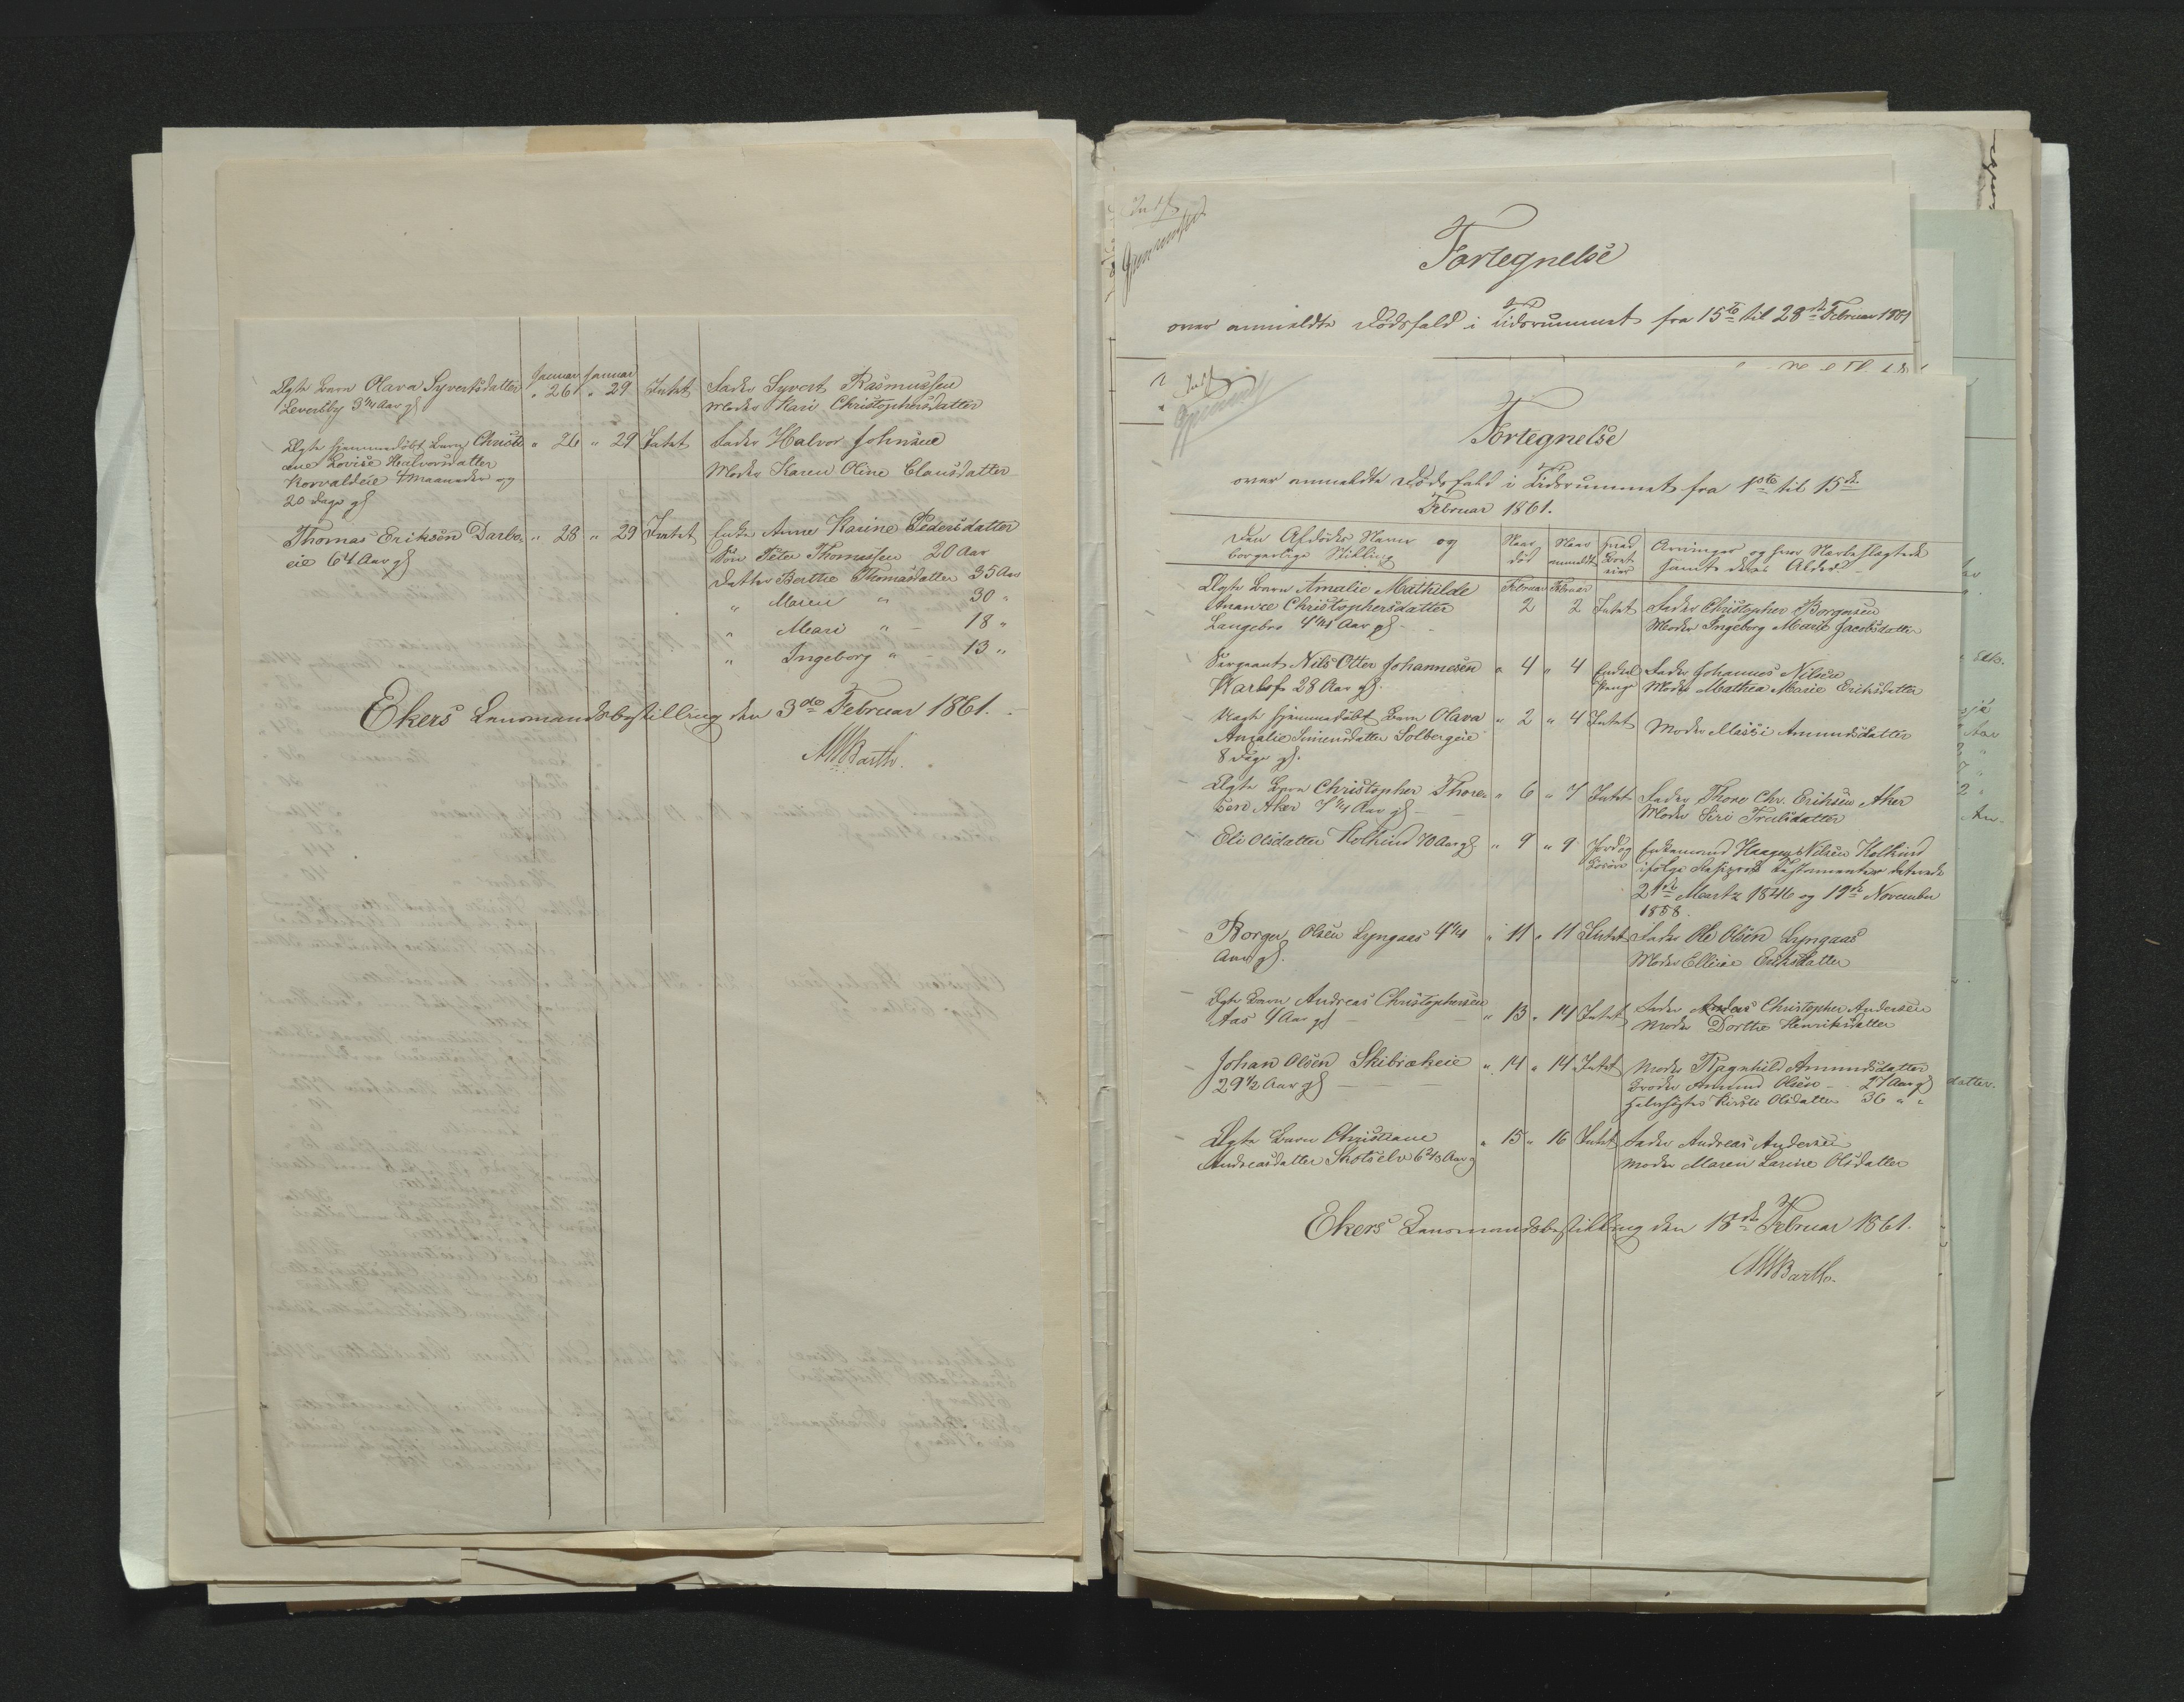 Januar Januar
Ægte Barn Olava Syvertsdatter " 26 " 29 Intet Fader Syvert Rasmussen
Leversby 3 1/4 Aar gl Moder Kari Christophersdatter
Ægte hjemmedøbt Barn Christi " 26 " 29 Intet Fader Halvor Johnsen
ane Lovise Halvorsdatter Moder Karen Oline Clausdatter
Korvaldeie 4 Maaneder og
20 Dage gl
Thomas Eriksen Darbo " 28 " 29 Intet Enke Anne Karine Pedersdatter
eie 64 Aar gl Søn Peter Thomassen 20 Aar
Datter Berthe Thomasdatter 35 Aar
" Maren " 30 "
" Mari " 18 "
" Ingeborg " 13 "
Ekers Lensmandsbestilling den 3die Februar 1861.
MWBarth.
Fortegnelse
over anmeldte Dødsfald i Tidsrummet fra 15de til 28de Februar 1861
Fortegnelse
over anmeldte Dødsfald i Tidsrummet fra 1ste til 15de
Februar 1861.
Den Afdødes Navn og Naar Naar Hvad Arvinger og hvor Nærbeslægtede
borgerlige Stilling død anmeldt samt deres Alder.
Ægte Barn Amalie Mathilde Februar Februar
Christophersdatter 2 2 Intet Fader Christopher Borgersen
Langebro 4 1/4 Aar gl Moder Ingeborg Marie Jacobsdatter
Sergeant Nils Otter Johannesen " 4 " 4 Fader Johannes Nilsen
28 Aar gl. Penge Moder Mathea Marie Eriksdatter
Uægte hjemmedøbt Barn Olava " 2 " 4 Intet Moder Massi Amundsdatter
Anzalie Simensdatter Solbergeie
8 Dage gl.
Ægte Barn Christopher Thore " 6 " 7 Intet Fader Thore Chr. Eriksen Aker
sen Aker 7 1/4 Aar gl Moder Siri Trulsdatter
Eli Olsdatter Kolkind 70 Aar gl " 9 " 9 Jord og Enkemand Haagen Nilsen Kolkind
Løsøre ifølge Testamenter daterede
21de Martz 1846 og 19de November
1858.
Borger Olsen Lyngaas 4 1/4 " 11 " 11 Intet Fader Ole Olsen Lyngaas
Aar gl. Moder Ellisiv Eriksdatter
Ægte Barn Andreas Christophersen " 13 " 14 Intet Fader Christopher Andersen
Aas 4 Aar gl Moder Dorthe Henriksdatter
Johan Olsen Skibrækeie " 14 " 14 Intet Moder Ragnhild Amundsdatter
29 1/2 Aar gl Broder Amund Olsen 27 Aar gl
Halvsøster Kirsti Olsdatter 36 " "
Ægte Barn Christiane " 15 " 16 Intet Fader Andreas Andersen
Andreasdatter Skotselv 6 2/3 Aar g Moder Maren Larine Olsdatter
Ekers Lensmandsbestilling den 15de Februar 1861.
MWBarth.
datter.